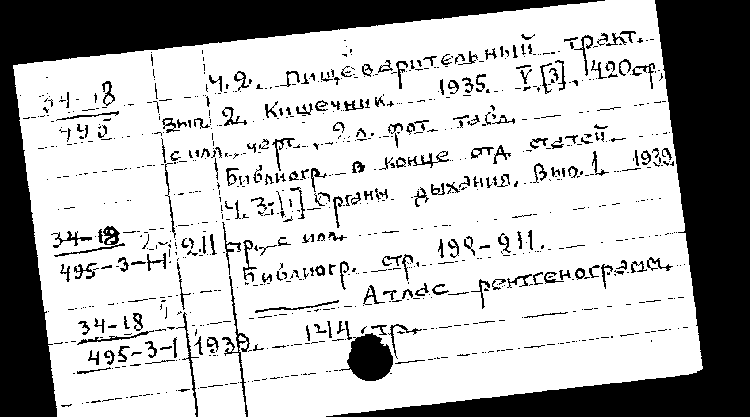 Ч.2. Пищеварительный тракт.
34-18
495
Вып. 2. Кишечник. 1935. V,[3], 420 стр,
с илл., черт., 9 л. фот. табл.
Библиогр. в конце отд. статей.
Ч. 3.[1] Органы дыхания. Вып. 1. 1939.
34-18
495-3-1-1
211 стр., с илл.
Библиогр. стр. 198-211.
Атлас рентгенограмм.
34-18
495-3-1
1939. 144 стр.